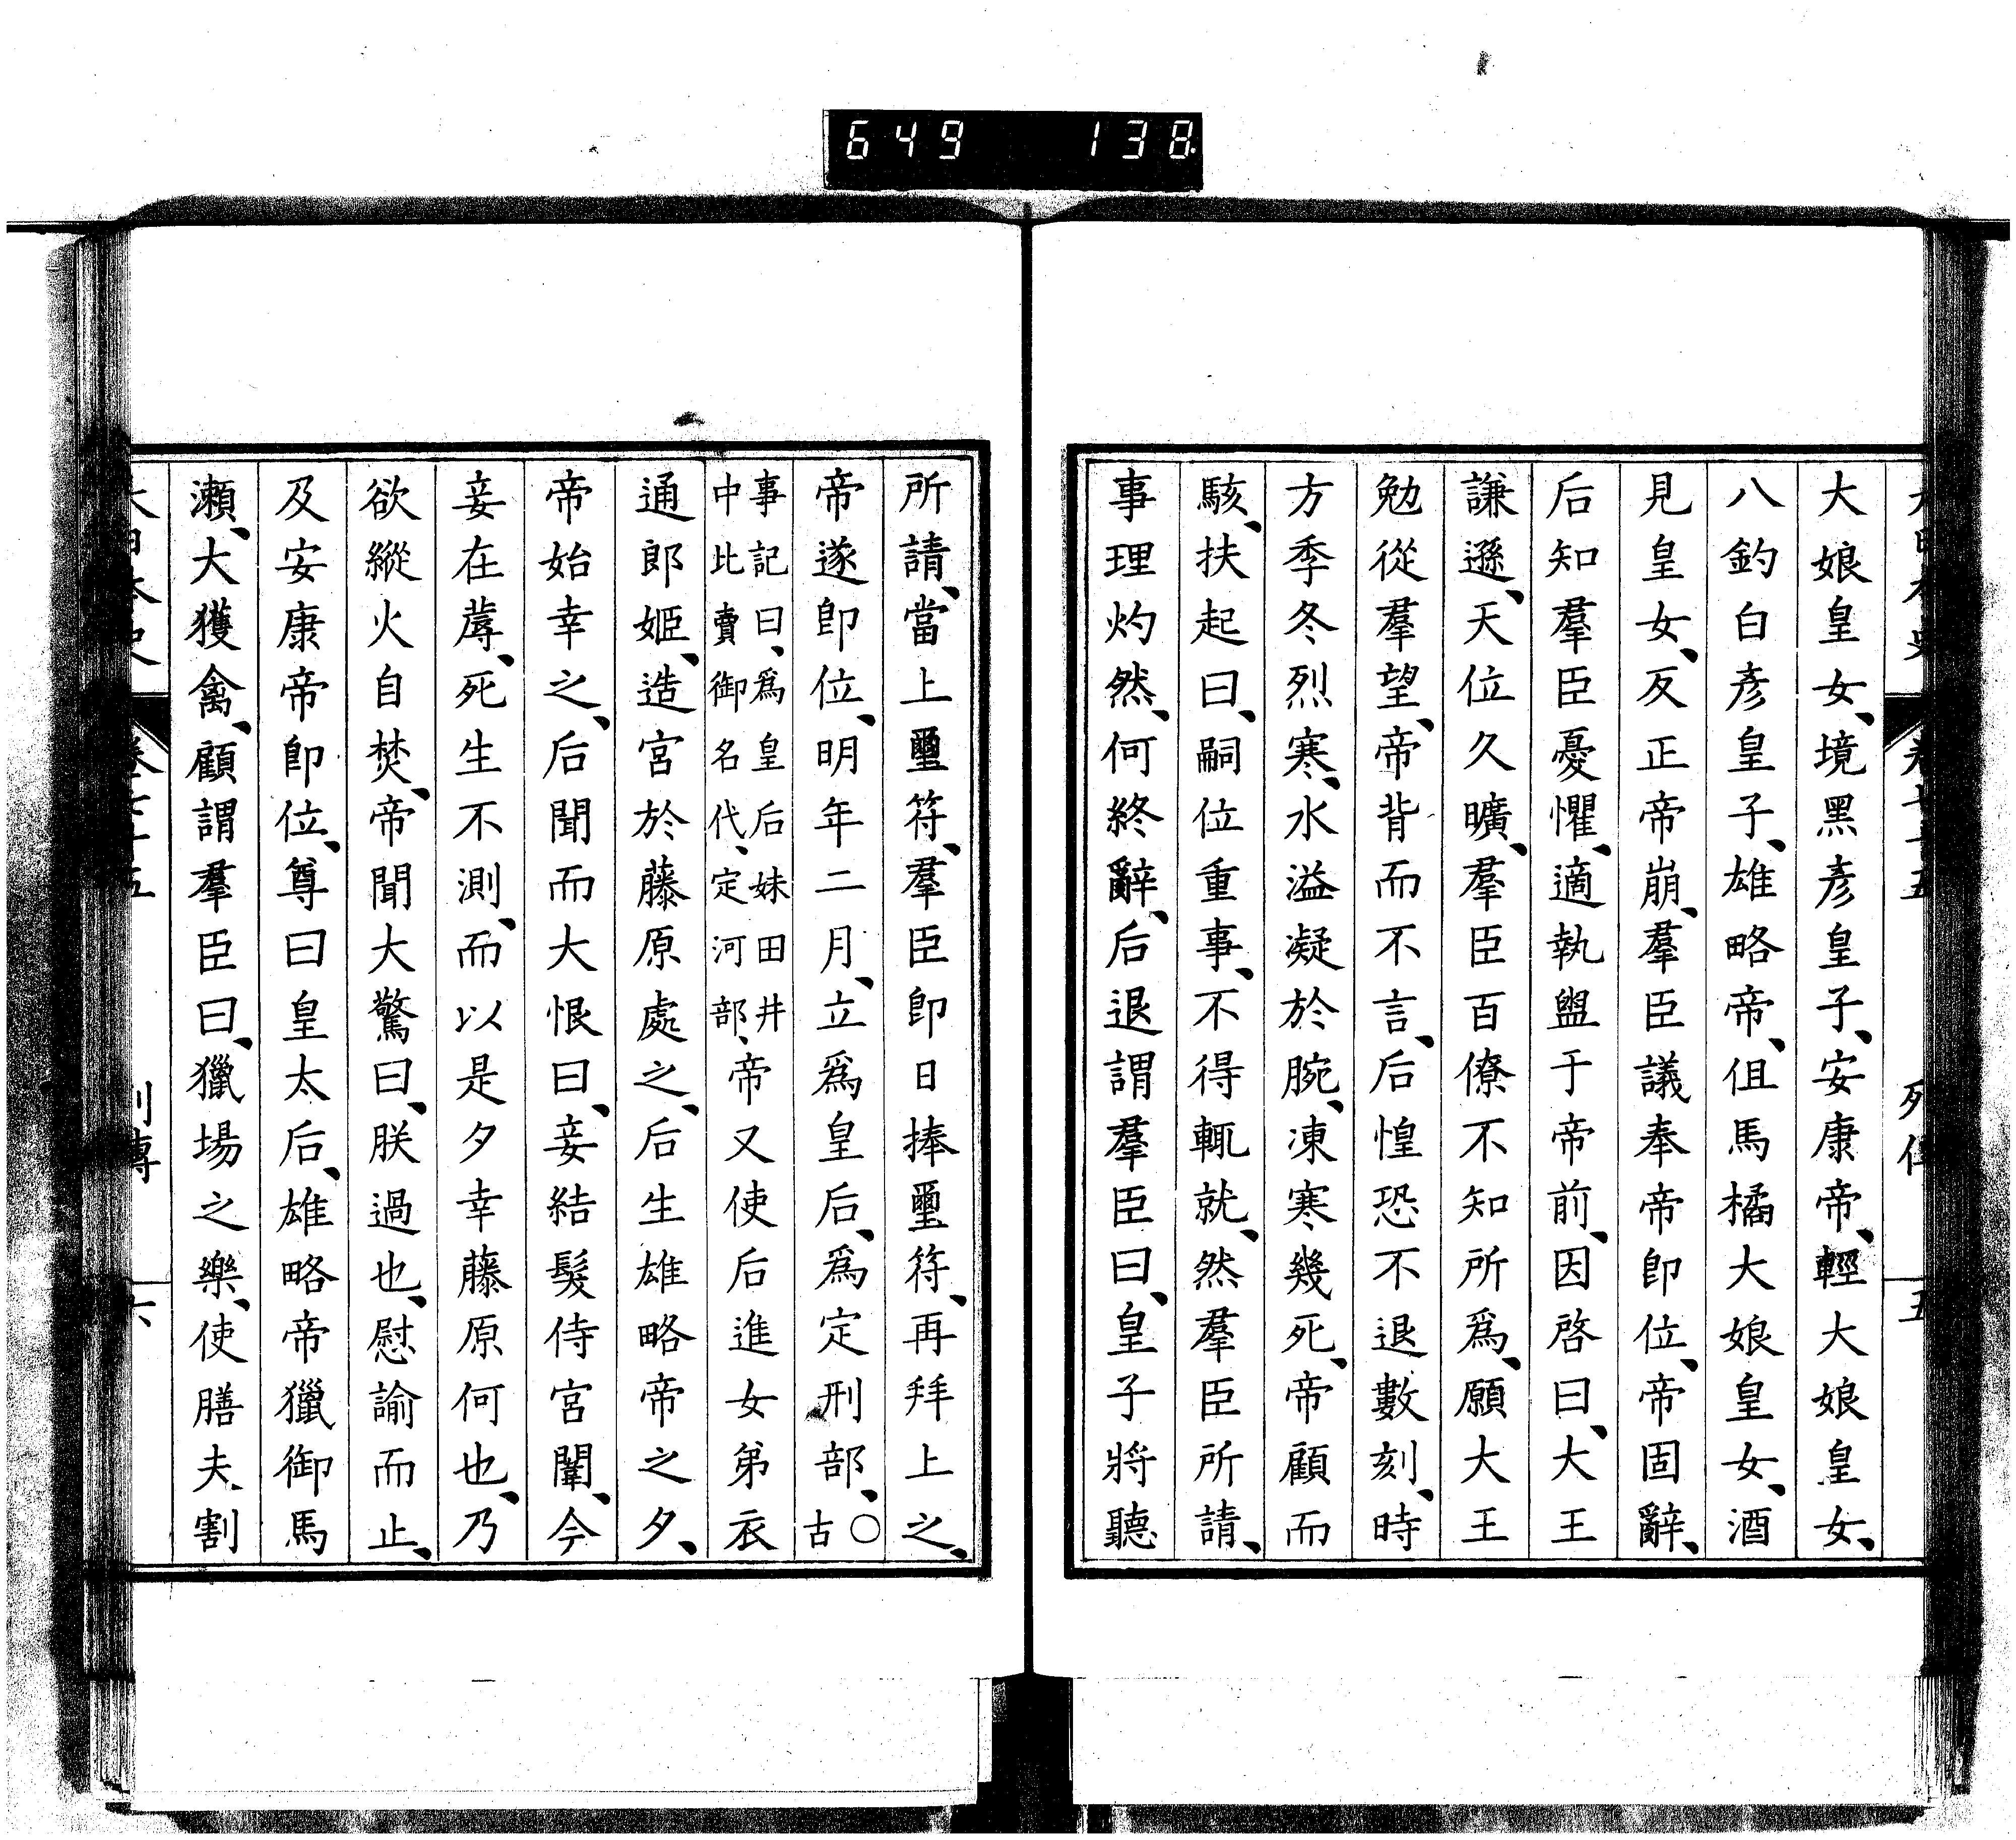 649 138
大娘皇女、境黑彥皇子、安康帝、輕大娘皇女、
八釣白彥皇子、雄略帝、伹馬橘大娘皇女、酒
見皇女、反正帝崩、羣臣議奉帝卽位、帝固辭、
后知羣臣憂懼、適執盥于帝前、因啓曰、大王
謙遜、天位久曠、羣臣百僚不知所爲、願大王
勉從羣望、帝背而不言、后惶恐不退數刻、時
方季冬烈寒、水溢凝於腕、凍寒幾死、帝顧而
駭、扶起曰、嗣位重事、不得輒就、然羣臣所請、
事理灼然、何終辭、后退謂羣臣曰、皇子將聽
所請、當上璽符、羣臣卽日捧璽符、再拜上之、
帝遂卽位、明年二月、立爲皇后、爲定刑部、○古
事記曰、爲皇后妹田井
中比賣御名代、定河部、帝又使后進女弟衣
通郎姬、造宮於藤原處之、后生雄略帝之夕、
帝始幸之、后聞而大恨曰、妾結髮侍宮闈、今
妾在蓐、死生不測、而以是夕幸藤原何也、乃
欲縱火自焚、帝聞大驚曰、朕過也、慰諭而止、
及安康帝卽位、尊曰皇太后、雄略帝獵御馬
瀨、大獲禽、顧謂羣臣曰、獵場之樂、使膳夫割